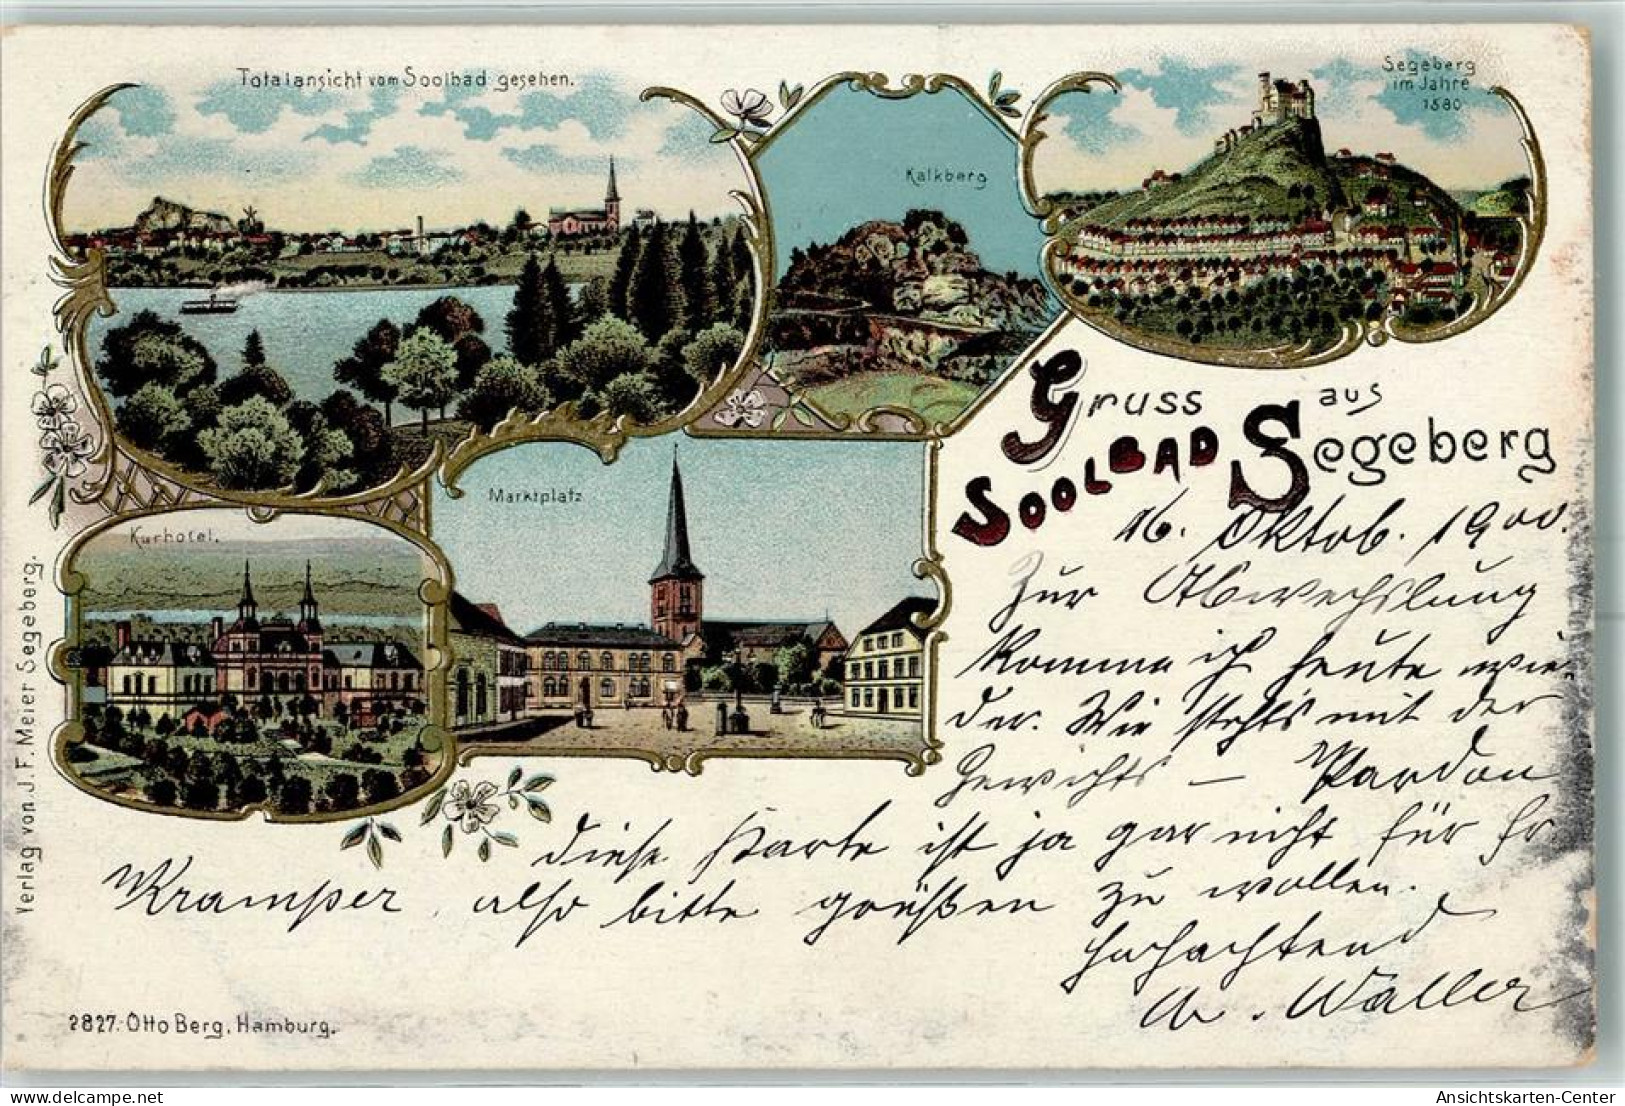 Totalansicht vom Soolbad gesehen.
Kalkberg
Segeberg
im Jahre
1580
Gruss aus
SOOLBAD Segeberg
Marktplatz
Kurhotel.
16. Oktob. 1900.
Zur Abwechslung
komme ich heute wie-
der. Wie steht's mit der
Gewichts — Pardon
diese Karte ist ja gar nicht für Hr.
Kramper, also bitte grüßen zu wollen.
Hochachtend
W. Waller
Verlag von J. F. Meier Segeberg.
2827. Otto Berg, Hamburg.
Ansichtskarten-Center